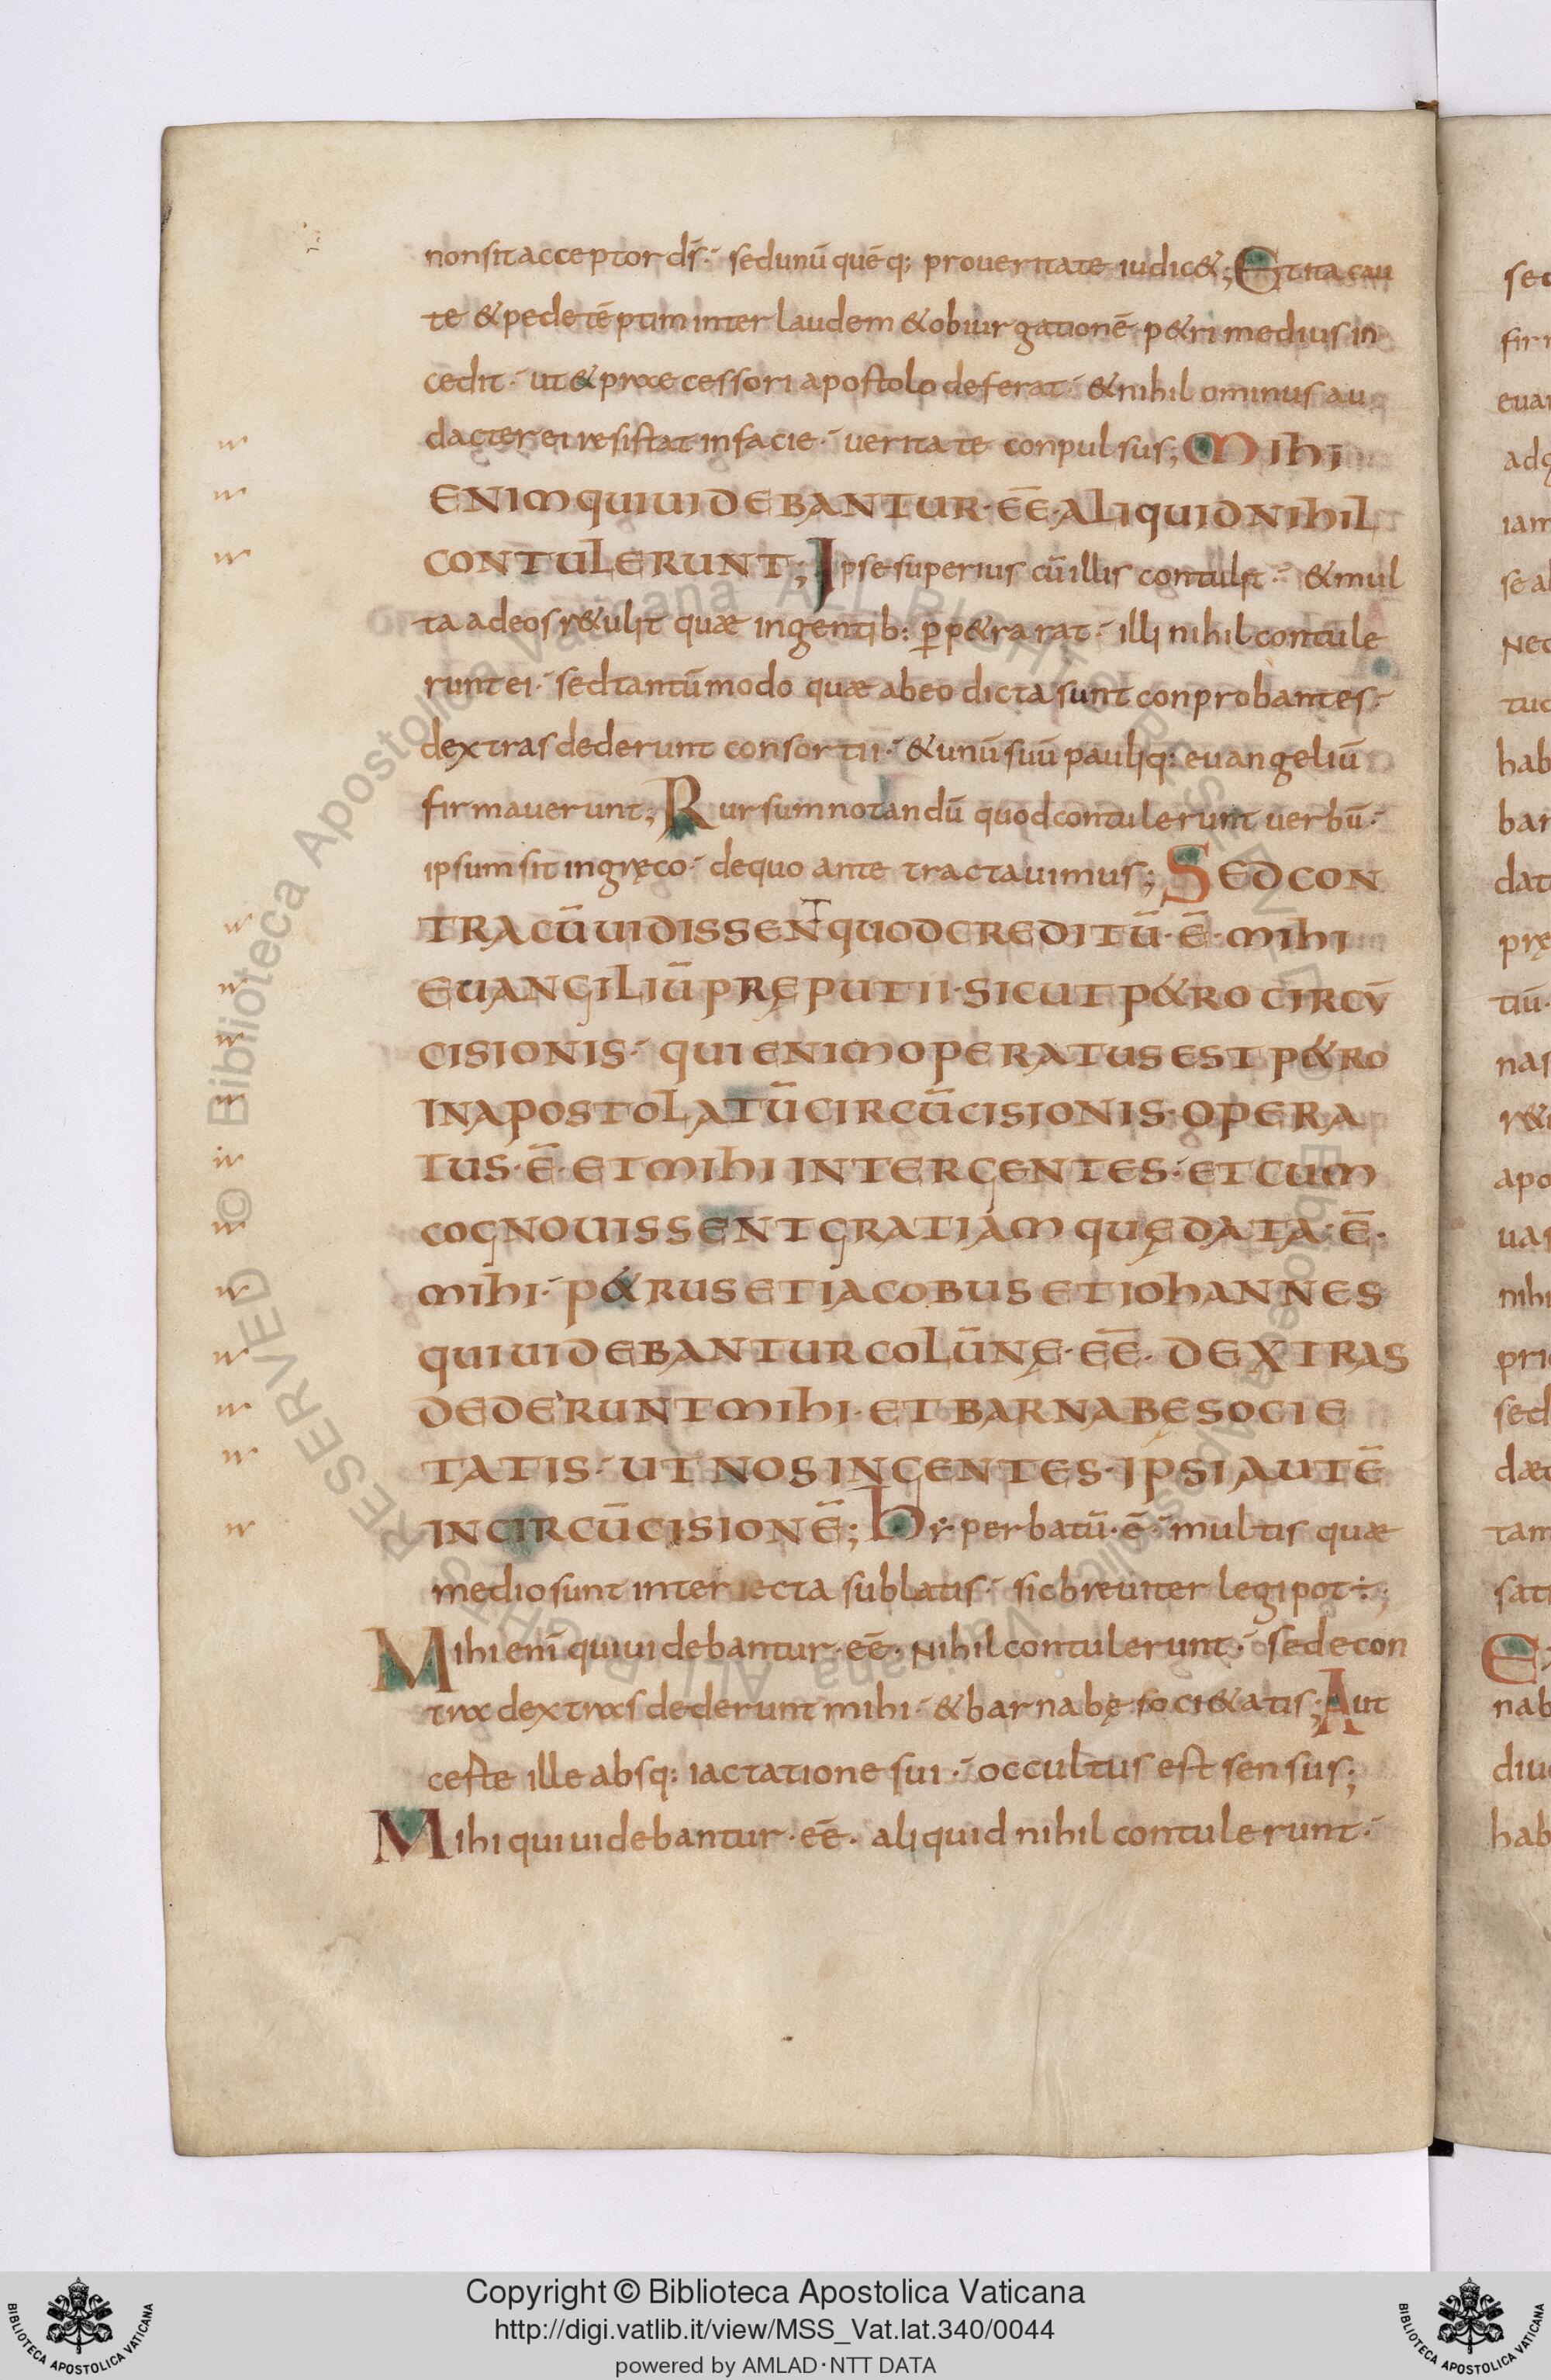 non sit acceptor ds̄ ·⁊ sed unū quēq; pro ueritate iudic&; Et ita cau
te & pedetēptim inter laudem & obiurgationē p&ri medius in
cedit ·⁊ ut & praecessori apostolo deferat ·⁊ & nihilominus au
dacter ei resistat in facie ·⁊ ueritate conpulsus; MIhI
ENIM QUI UIDEBANTUR · EĒ · ALIQUID NIhIL
CONTULERUNT; Ipse superius cū illis contulit ·⁊ & mul
ta ad eos r&ulit quæ in gentib: p̄p&rarat ·⁊ illi nihil contule
runt ei ·⁊ sed tantūmodo quæ ab eo dicta sunt conprobantes ·⁊
dextras dederunt consortii ·⁊ & unū suū pauliq: euangeliū
firmauerunt; Rursum notandū quod contulerunt uerbū ·⁊
ipsum sit in gręco ·⁊ de quo ante tractauimus; SED CON
TRA CŪ UIDISSENT QUOD CREDITŪ · Ē · MIhI
EUANGILIŪ PRĘPUTII · SICUT P&RO CIRCŪ
CISIONIS ·⁊ QUI ENIM OPERATUS EST P&RO
IN APOSTOLATŪ CIRCŪCISIONIS · OPERA
TUS · Ē · ET MIhI INTER GENTES ·⁊ ET CUM
COGNOUISSENT GRATIAM QUĘ DATA · Ē ·
MIhI ·⁊ P&RUS ET IACOBUS ET IOhANNES
QUI UIDEBANTUR COLŪNĘ · EĒ · DEXTRAS
DEDERUNT MIhI · ET BARNABĘ SOCIE
TATIS ·⁊ UT NOS IN GENTES · IPSI AUTĒ
IN CIRCŪCISIONĒ; hyperbatū · ē ·⁊ multis quæ
medio sunt interiecta sublatis ·⁊ sic breuiter legi pot÷;
Mihi enī qui uidebantur · eē · Nihil contulerunt ·⁊ sed e con
tra dextras dederunt mihi ·⁊ & barnabę soci&atis; Aut
certe ille absq: iactatione sui ·⁊ occultus est sensus;
Mihi qui uidebantur · eē · aliquid nihil contulerunt ·⁊
Copyright © Biblioteca Apostolica Vaticana
http://digi.vatlib.it/view/MSS_Vat.lat.340/0044
powered by AMLAD · NTT DATA